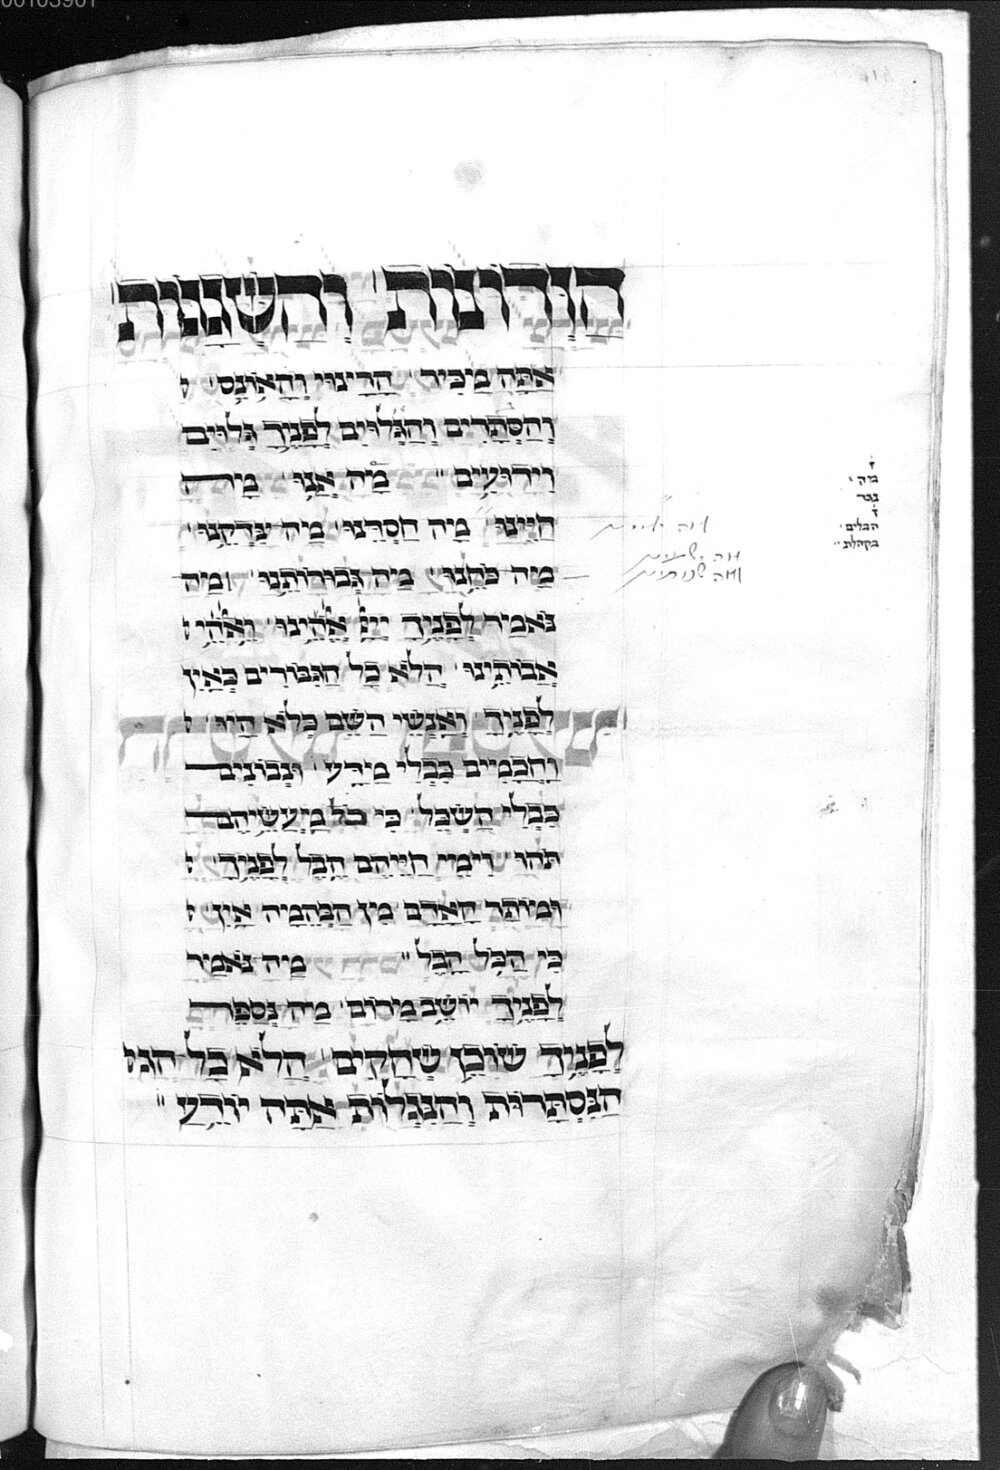 הזדונות והשגגות
אתה מכיר הרצון והאונס
והסתרים והגלוים לפניך גלוים
וידועים׃ מה אנו מה
חיינו מה חסדנו מה צדקנו
מה כחנו מה גבורותנו ומה
נאמר לפניך ייי אלהינו ואלהי
אבותינו הלא כל הגבורים כאין
לפניך ואנשי השם כלא היו
וחכמים כבלי מדע ונבונים
כבלי השכל כי כל מעשיהם
תהו וימי חייהם הבל לפניך
ומותר האדם מן הבהמה אין
כי הכל הבל׃ מה נאמר
לפניך יושב מרום מה נספר
לפניך שוכן שחקים הלא כל הנ
הנסתרות והנגלות אתה יודע׃
הבלים
בקהלת